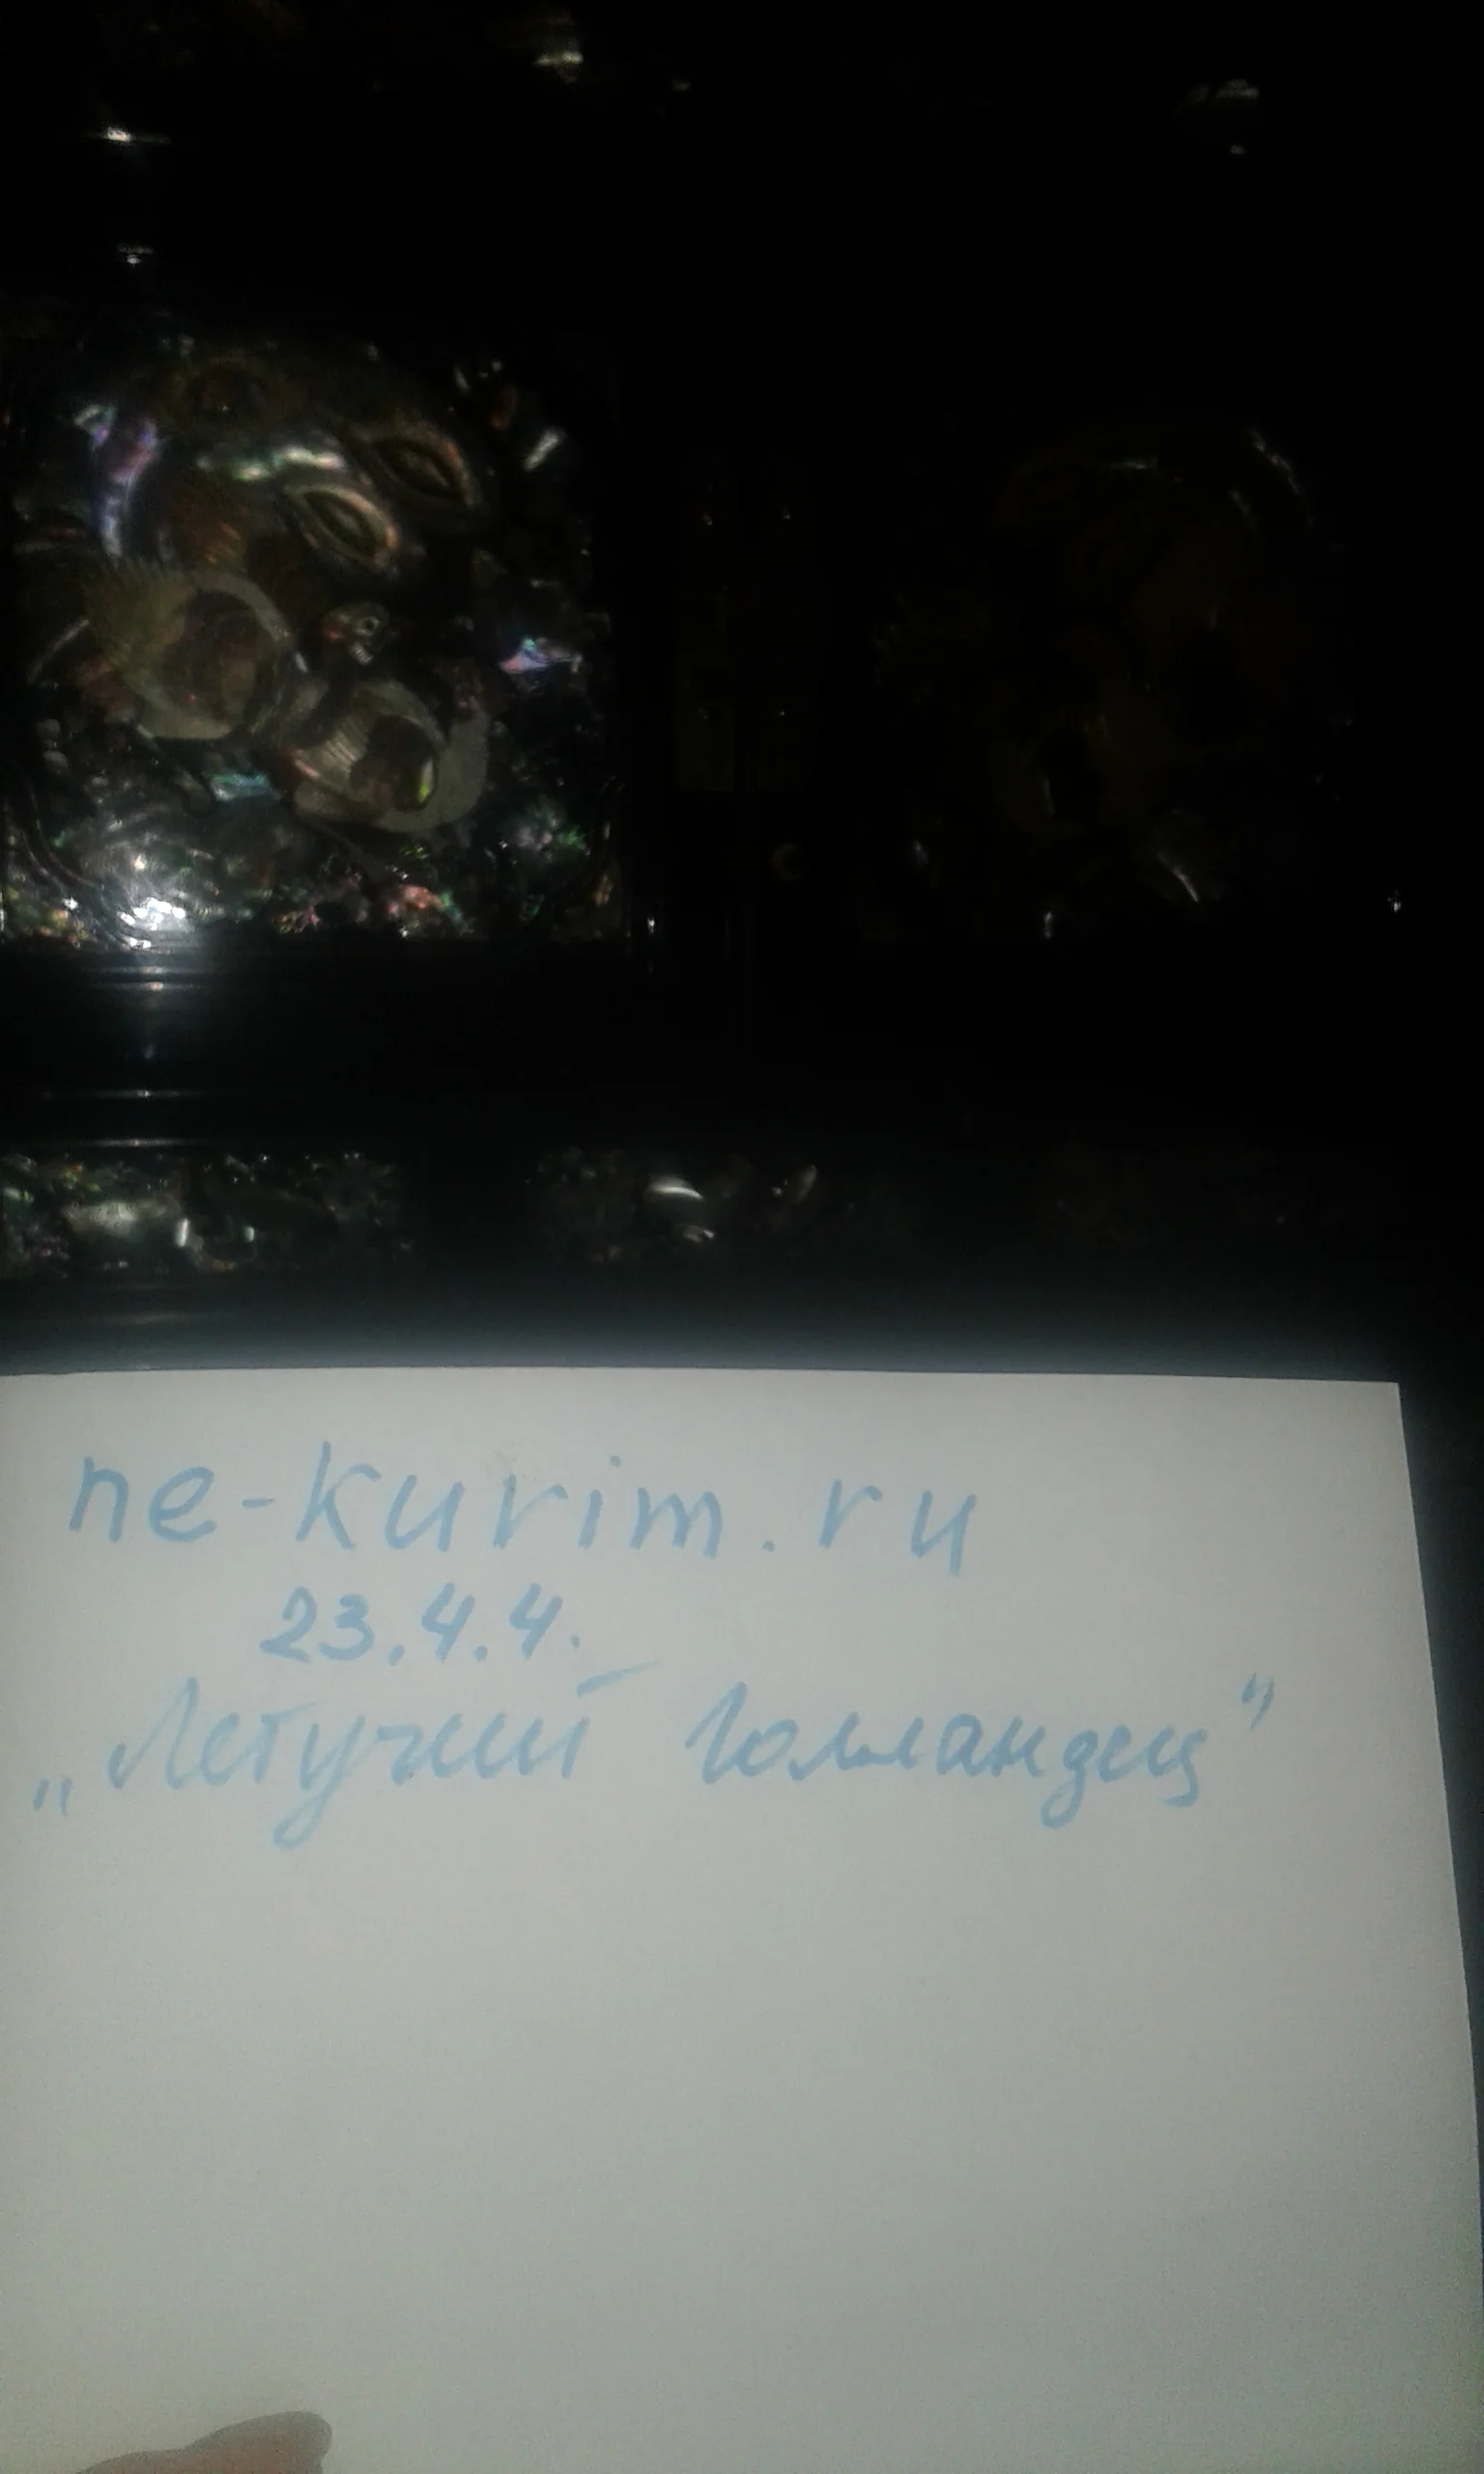 ne-kurim.ru
23.4.4.
„Летучий Голландец"